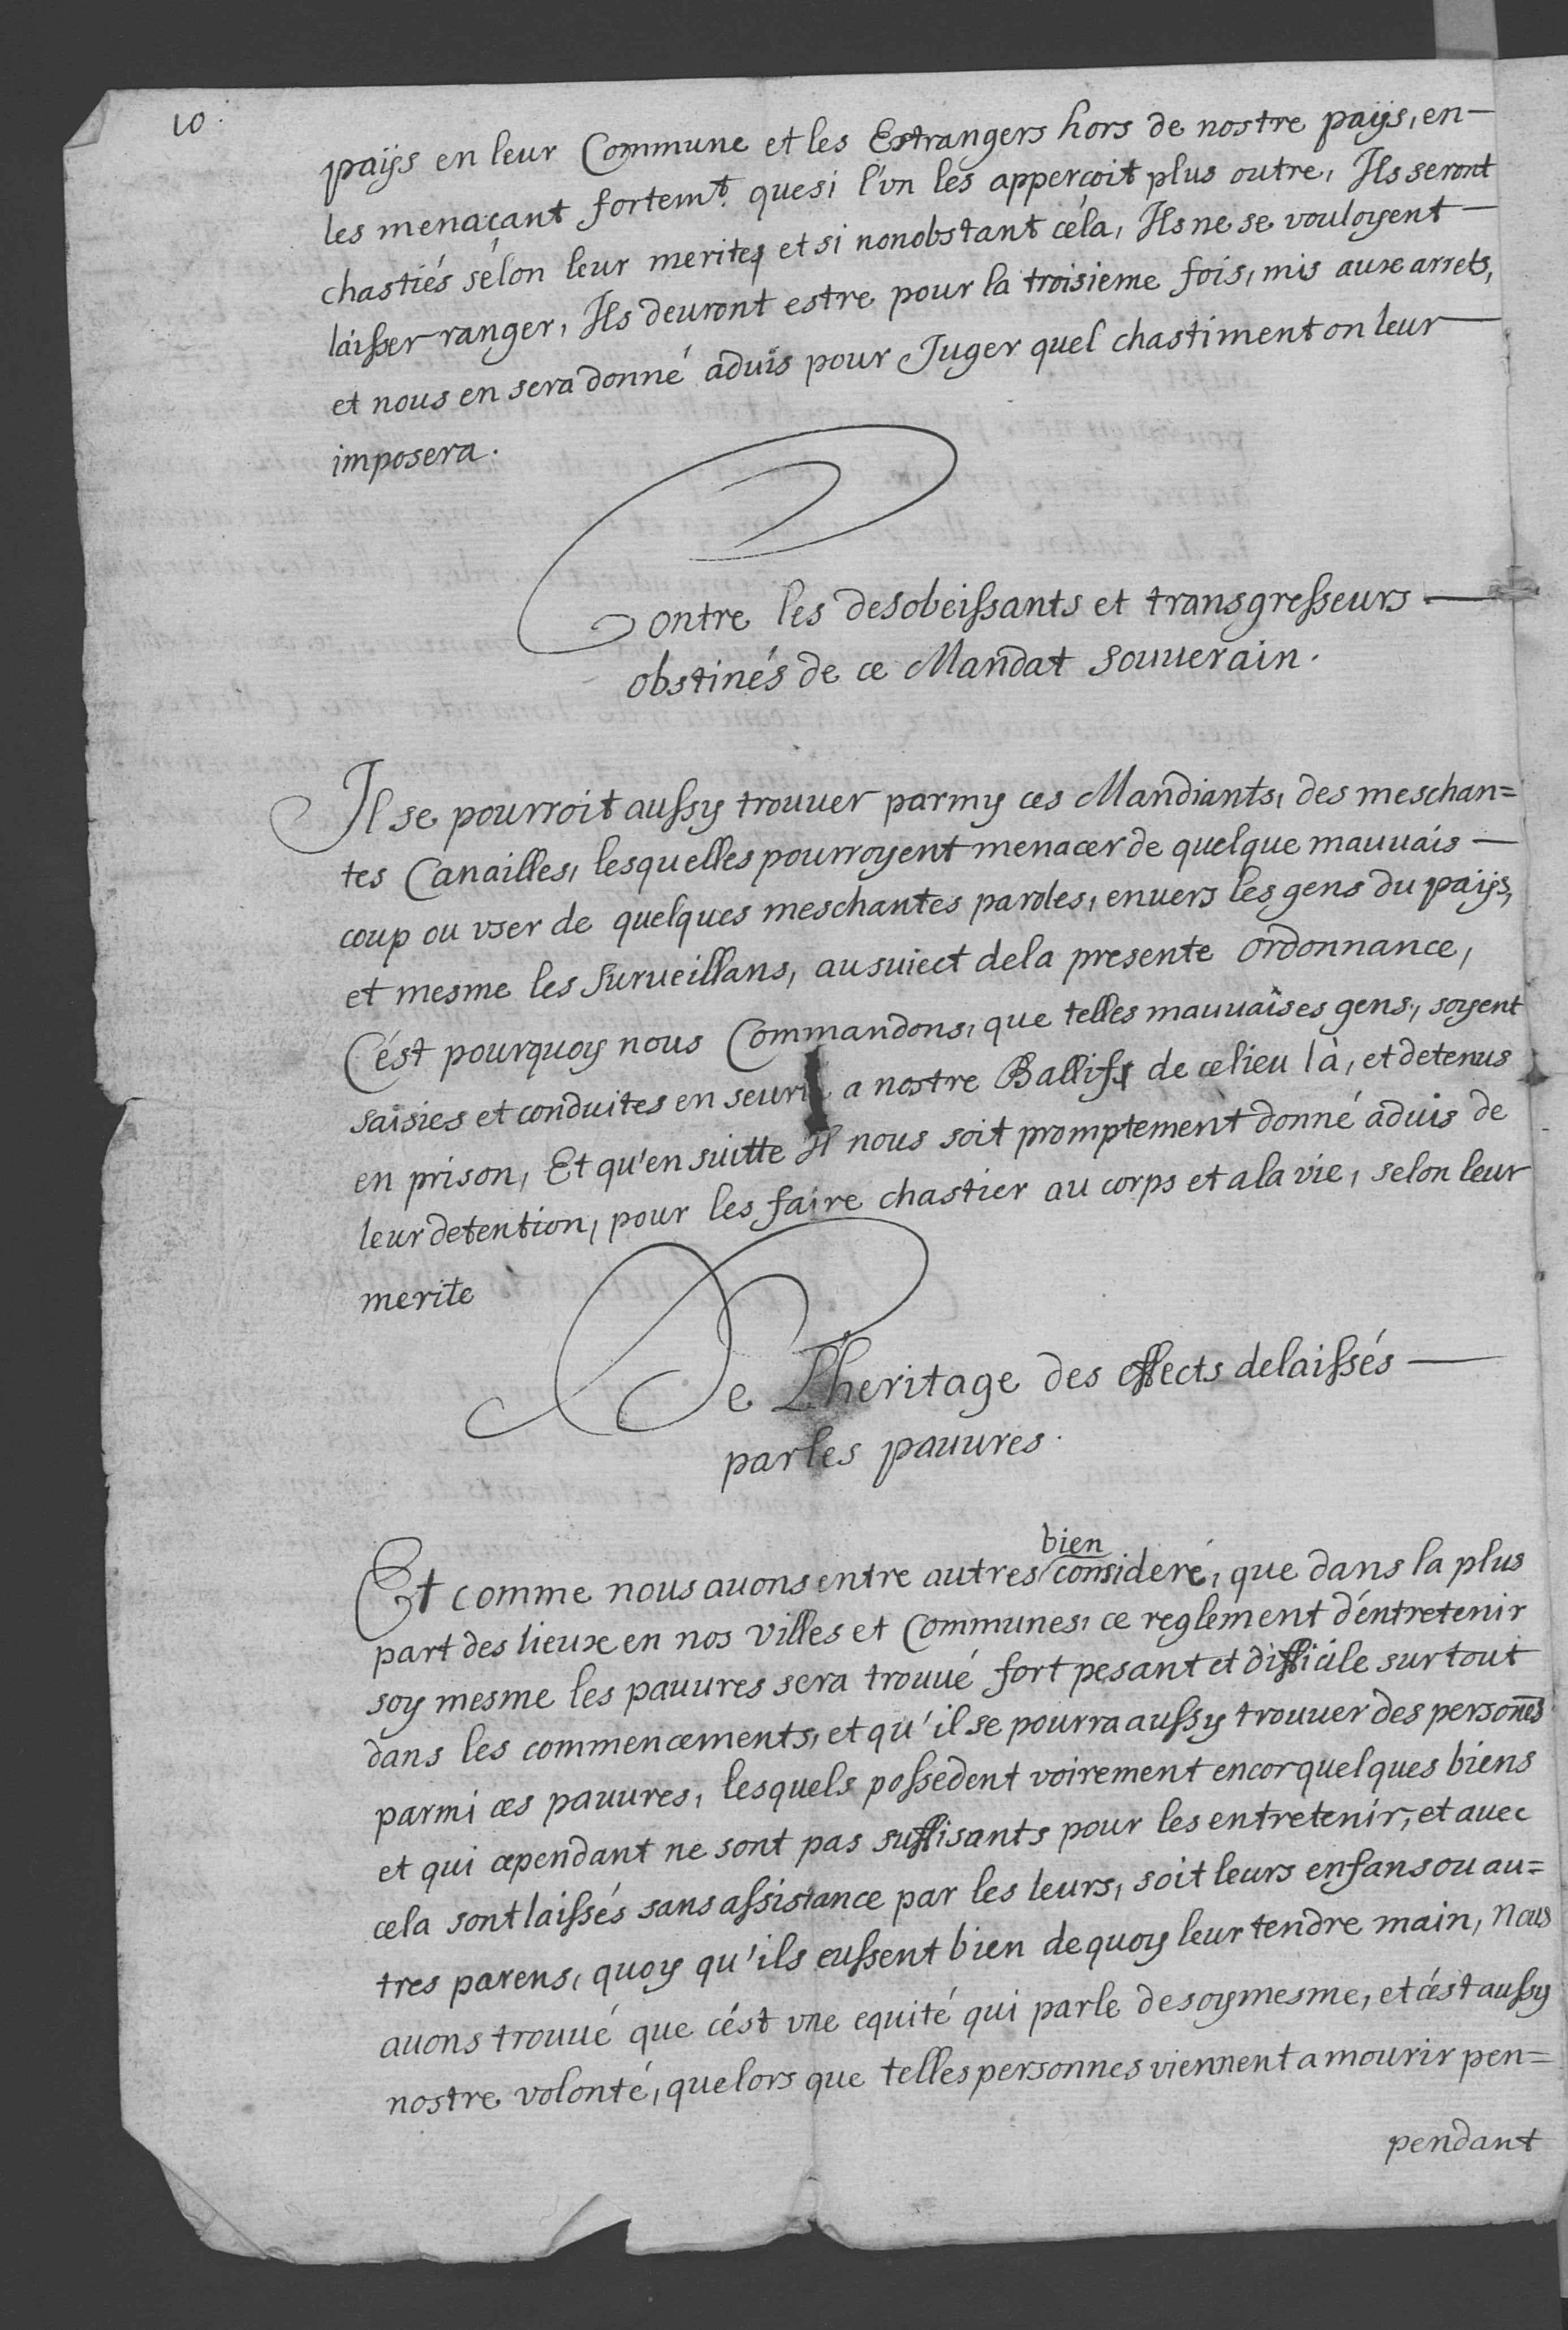 10.
païjs en leur Commune et les Estrangers hors de nostre païjs, en-
les menaçant fortemt. que si l'on les apperçoit plus outre, Ils seront
chastiés sélon leur merites et si nonobstant céla, Ils ne se vouloyent -
laisser ranger, Ils deuront estre pour la troisieme fois, mis aux arrets,
et nous en sera donné aduis pour Juger quel chastiment on leur -
imposera.
Contre les desobeissants et transgresseurs -
obstinés de ce Mandat souuerain.
Il se pourroit aussy trouuer parmy ces Mandiants, des meschan=
tes Canailles, lesquelles pourroyent menacer de quelque mauuais -
coup ou vser de quelques meschantes paroles, enuers les gens du païjs,
et mesme les surueillans, au suiect de la presente ordonnance,
C'ést pourquoy nous Commandons, que telles mauuaises gens, soyent
saisies et conduites en a nostre Ballifs de ce lieu là, et detenus
en prison, Et qu'en suitte Il nous soit promptement donné aduis de
leur detention, pour les faire chastier au corps et a la vie, selon leur
merite
De L'heritage des effects delaissés -
par les pauures.
bien
Et comme nous auons entre autres consideré, que dans la plus
part des lieux en nos villes et Communes, ce reglement d'éntretenir
soy mesme les pauures sera trouué fort pesant et difficile sur tout
dans les commencements, et qu'il se pourra aussy trouuer des persones
parmi ces pauures, lesquels possedent voirement encor quelques biens
et qui cependant ne sont pas suffisants pour les entretenir, et auec
cela sont laissés sans assistance par les leurs, soit leurs enfans ou au=
tres parens, quoy qu'ils eussent bien de quoy leur tendre main, nous
auons trouué que c'ést vne equité qui parle de soy mesme, et c'ést aussy
nostre volonté, que lors que telles personnes viennent a mourir pen=
pendant